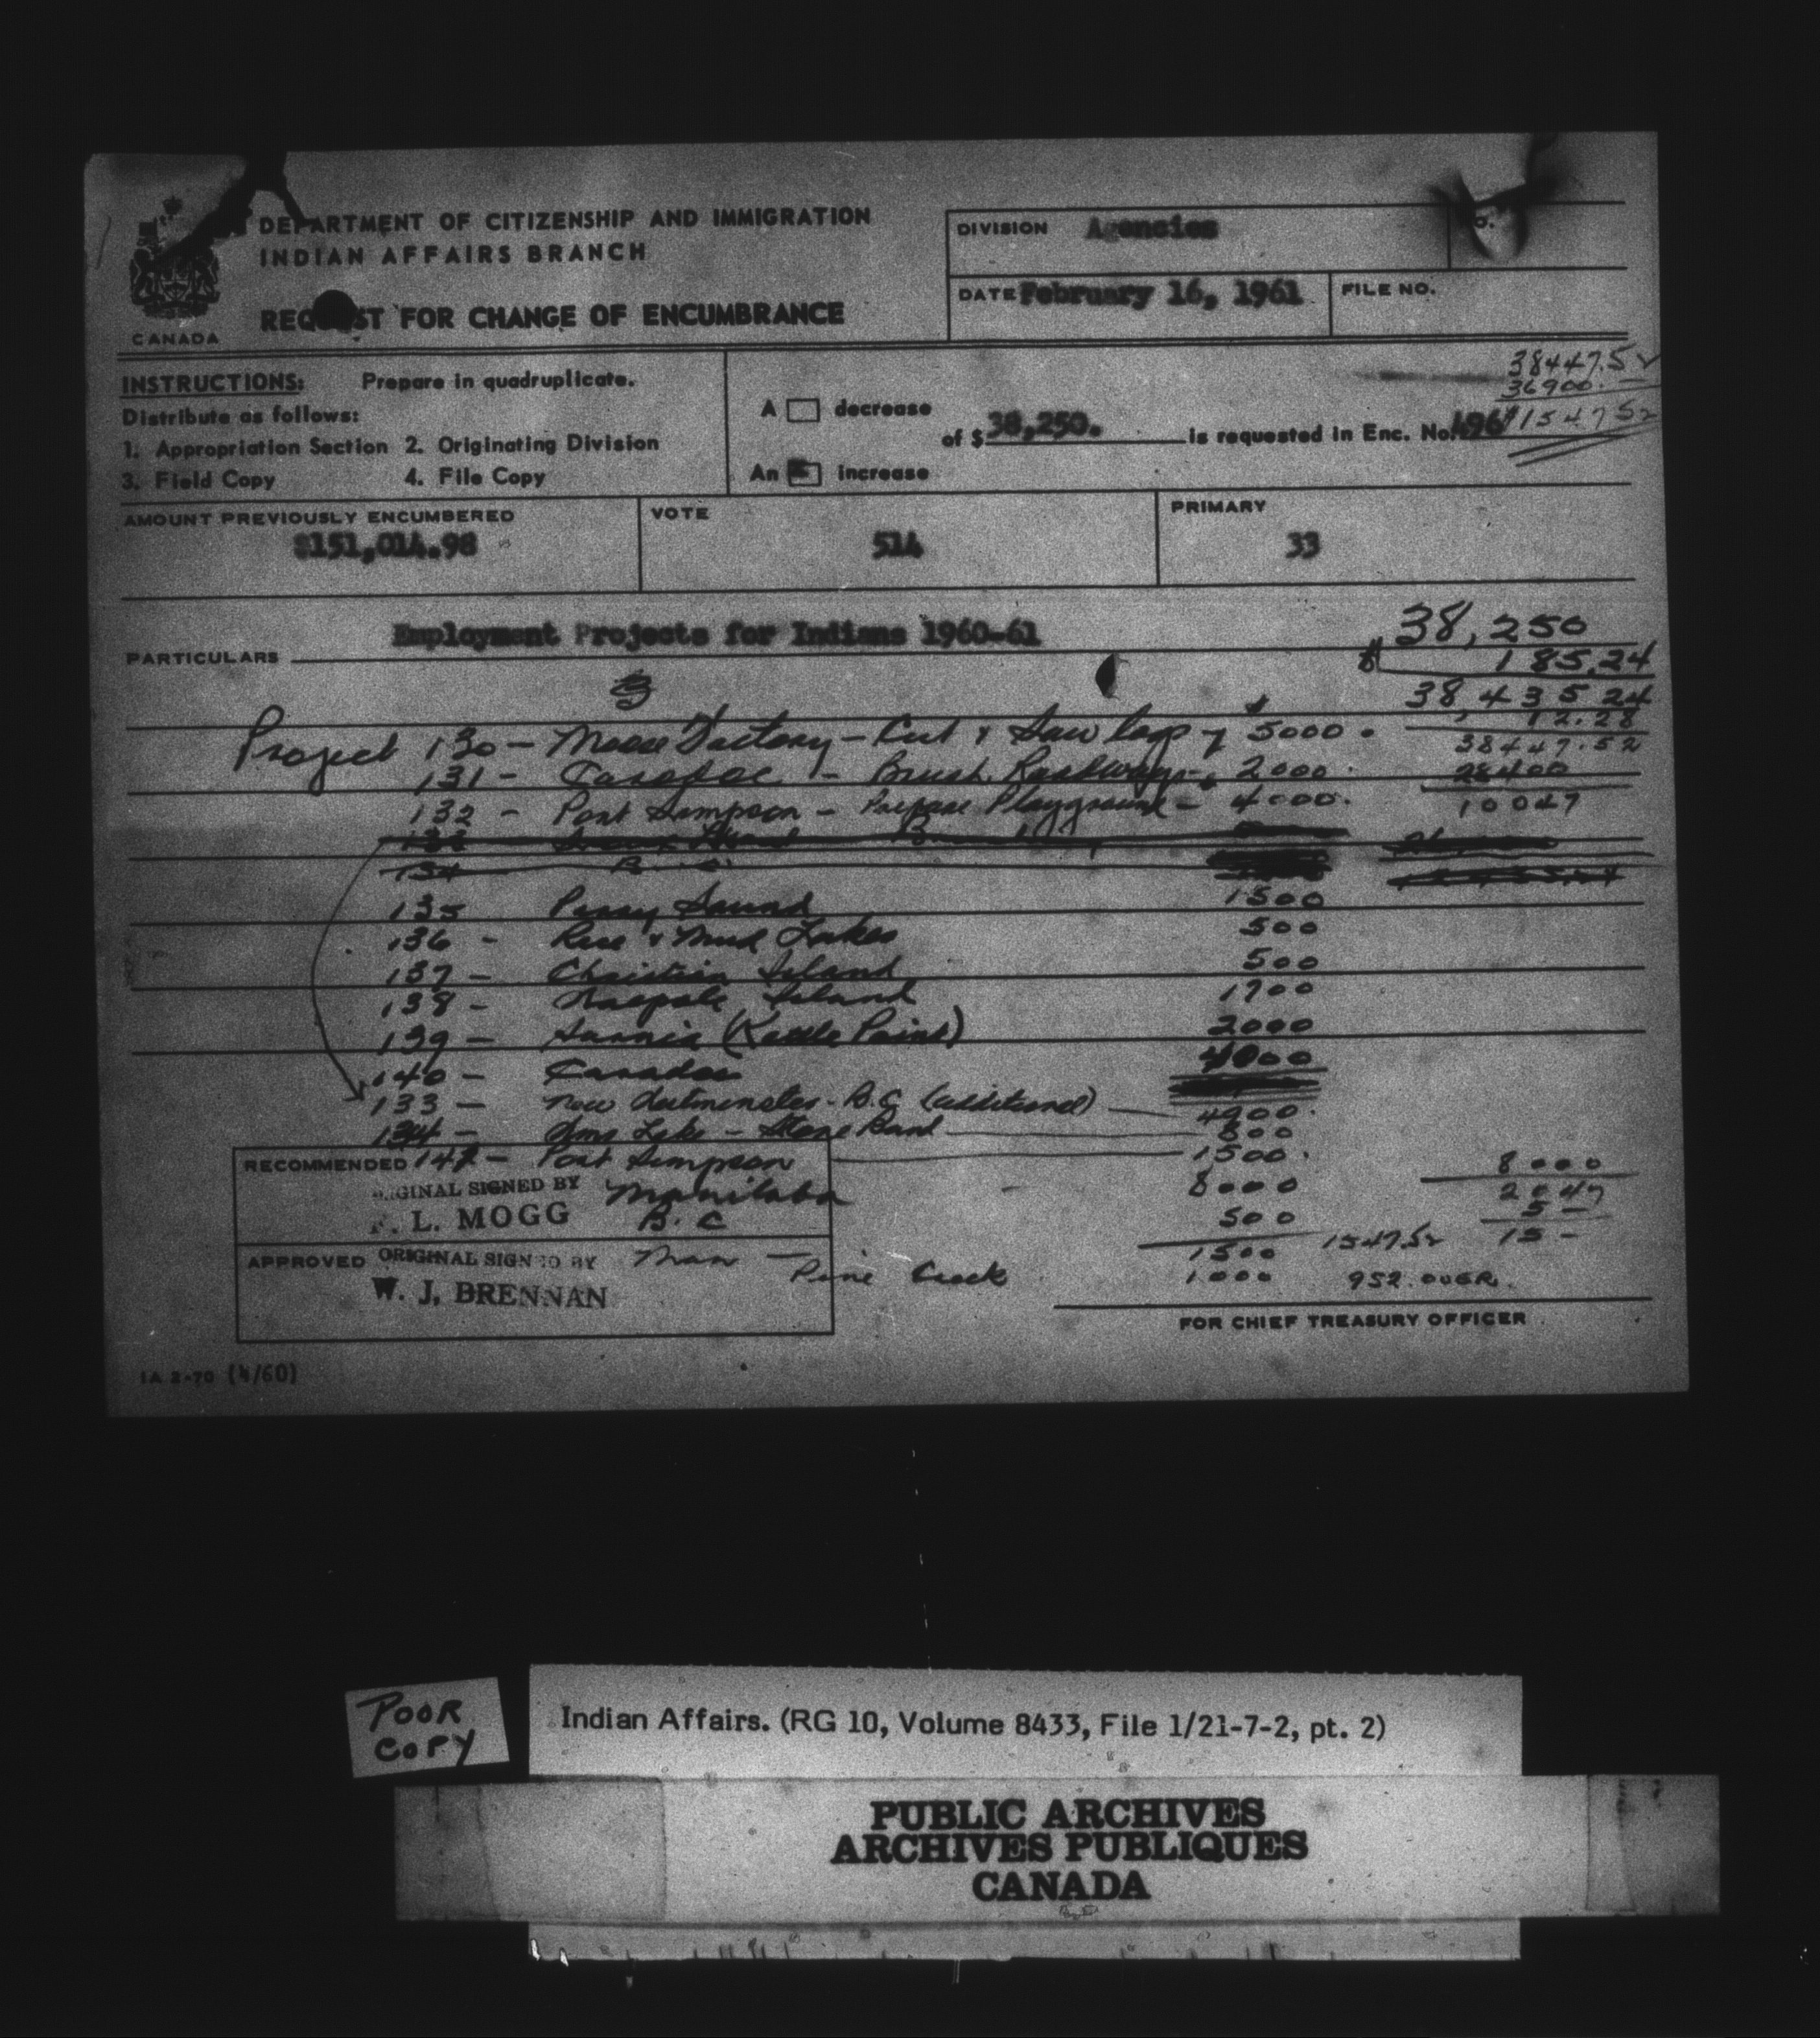 DEPARTMENT OF CITIZENSHIP AND IMMIGRATION
INDIAN AFFAIRS BRANCH
REQUEST FOR CHANGE OF ENCUMBRANCE
CANADA
DIVISION Agencies
DATE February 16, 1961
FILE NO.
INSTRUCTIONS: Prepare in quadruplicate.
Distribute as follows:
1. Appropriation Section 2. Originating Division
3. Field Copy 4. File Copy
A decrease
An increase
of $ 38,250. is requested in Enc. No. 496
38447.52
36900.—
1547 52
AMOUNT PREVIOUSLY ENCUMBERED
$151,014.98
VOTE
514
PRIMARY
33
PARTICULARS Employment Projects for Indians 1960-61
38,250
185.24
38,435.24
12.28
38447.52
28400
10047
Project 130 - Moose Factory - Cut & Saw logs - $5000.
131 - Caradoc - Brush Roadways - 2000.
132 - Port Simpson - Prepare Playground - 4000.
134 B.C.
135 Parry Sound 1500
136 - Rice & Mud Lakes 500
137 - Christian Island 500
138 - Walpole Island 1700
139 - Sarnia (Kettle Point) 2000
140 - Caradoc 4000
133 - New Westminster - B.C. (additional) — 4900.
134 - Lake - Stone Band — 800
Port Simpson — 1500.
Manitoba 8000
B.C. 500
Man — Pine Creek
1500
1000
8000
2047
5 -
15 -
1547 52
952. OVER.
RECOMMENDED
ORIGINAL SIGNED BY
L. MOGG
APPROVED ORIGINAL SIGNED BY
W. J. BRENNAN
FOR CHIEF TREASURY OFFICER
IA 2-70 (4/60)
POOR
COPY
Indian Affairs. (RG 10, Volume 8433, File 1/21-7-2, pt. 2)
PUBLIC ARCHIVES
ARCHIVES PUBLIQUES
CANADA